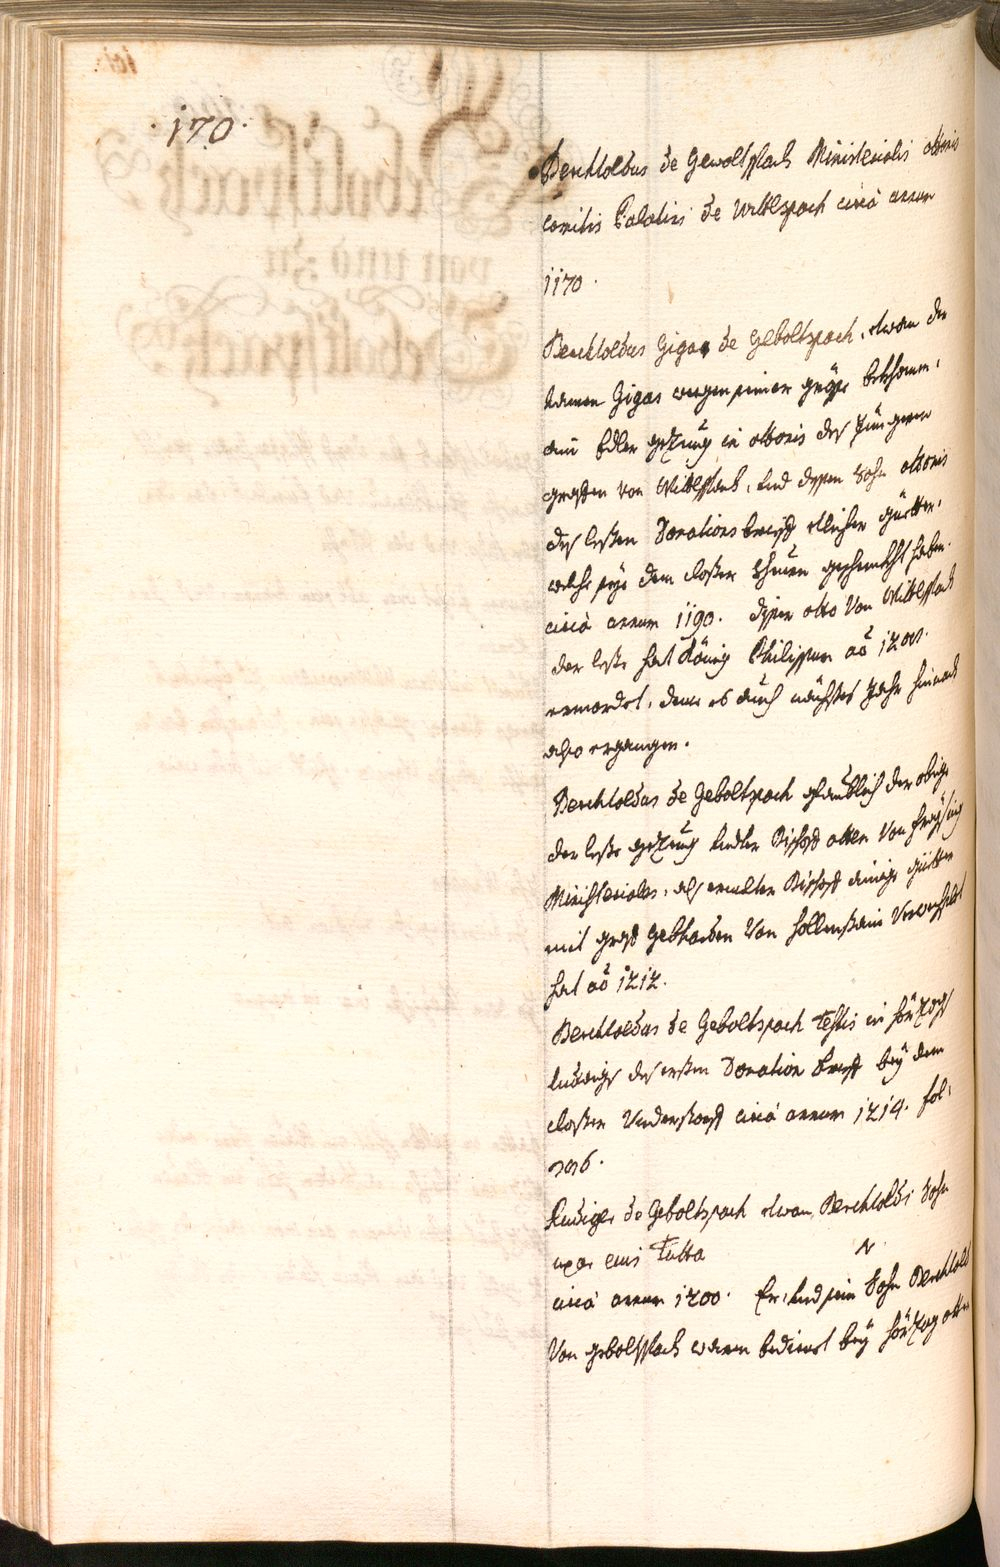 ·170·
Berchtoldus de Gewoltspach Ministerialis ottonis
comitis Palatini de Wittlspach circà annum
1170.
Berchtoldus Gigas de Geboltspach, etwan der
Namen Gigas wegen seiner größe bekhomen,
ain Edler gezeug in ottonis des Jüngern
grafen von Wittlspach, und dessen Sohn ottonis
des lesten Donations brieff etlicher güetter,
welche sye dem closter geschenckht haben
circà annum 1190. diser otto von Wittlspach
der leste hat König Philippum aõ 1208.
ermordet, deme es auch nächstes Jahr hinnach
also ergangen.
Berchtoldus de Geboltspach glaublich der obige
der leste gezeug under Bischoff otten von Freysing
Ministeriales, als ermelter Bischoff ainige güetter
mit graf Gebharden von Hollenstain verwechslet
hat aõ 1212.
Berchtoldus de Geboltspach testis in Hörzogs
Ludwigs des ersten Donation brieff bey dem
closter Understorff circà annum 1214. fol:
206.
Rudiger de Geboltspach etwan Berchtoldi Sohn
uxor eius Tutta
circà annum 1200. Er, und sein Sohn Berchtold
von geboltspach waren bedienet bey Hörzog otten